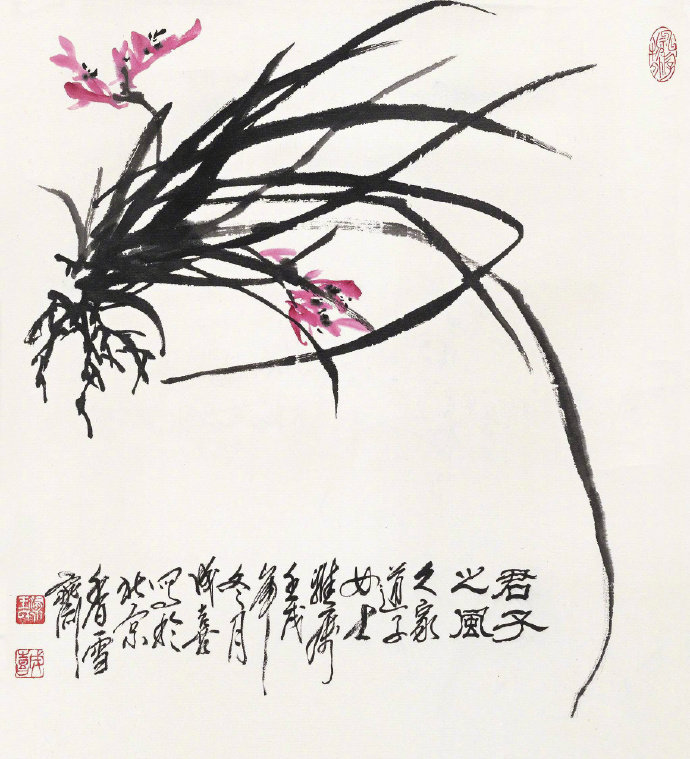 君子
之風
久家
道子
女士
雅属
壬戌
年
冬月
成喜
写於
北京
香雪
齋